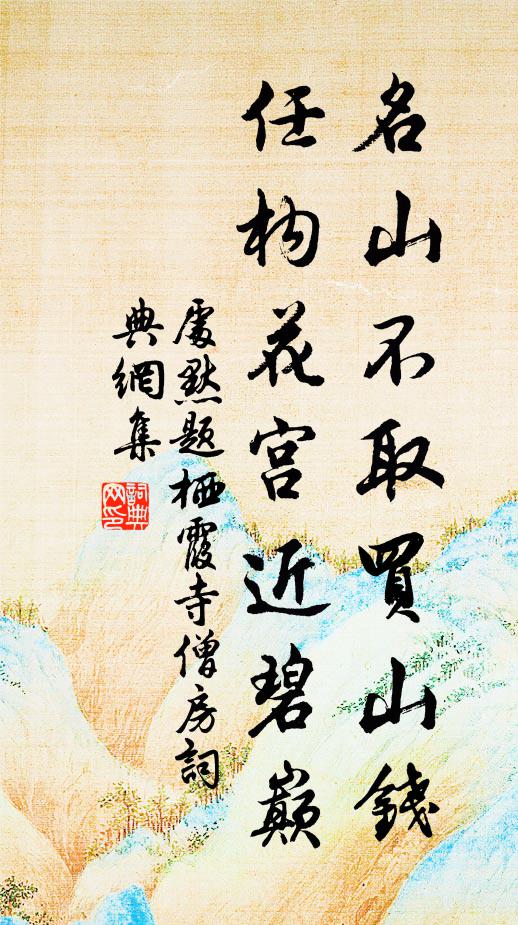 名山不取買山錢
任构花宮近碧巅
處黙題栖霞寺僧房詞
典網集
詞典
网印